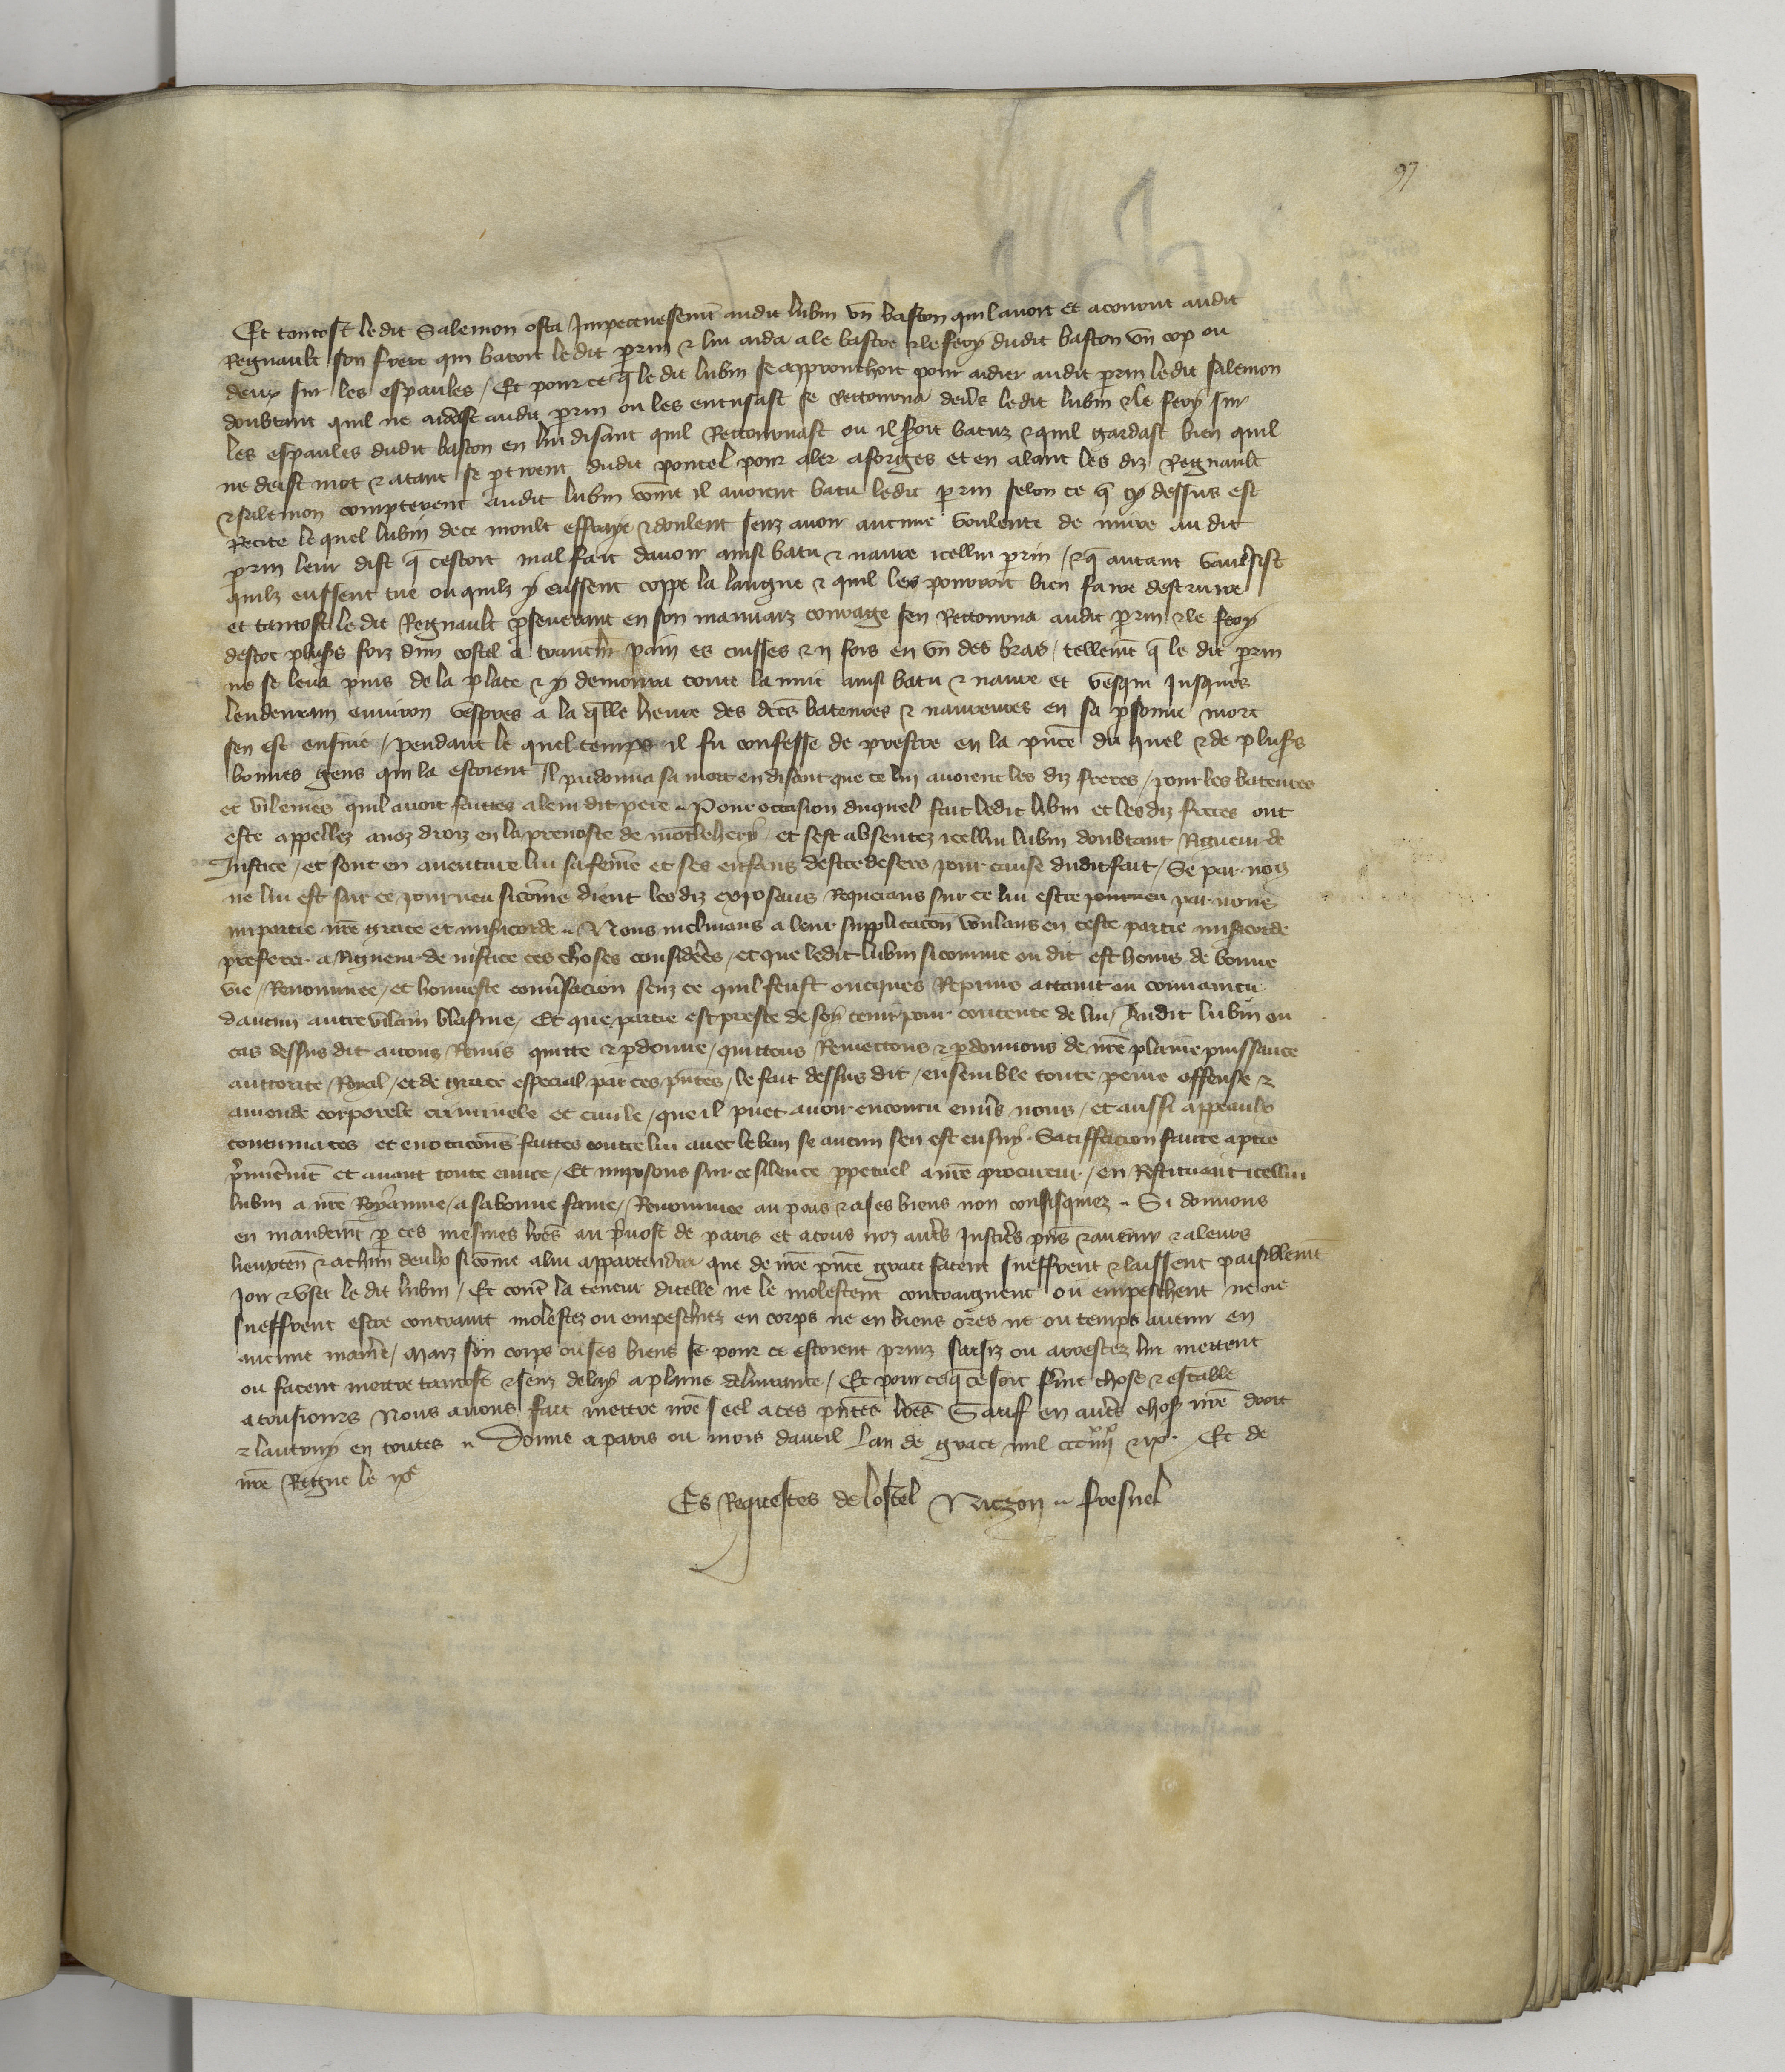 97
Et tantost ledit Salemon osta Impetueusemt audit lubin un baston quil avoit et acourut audit
Regnault son frere qui batoit ledit prin & lui aida a le bastre & le fery dudit baston un cop ou
deux sur les espaules / Et pour ce q̄ le dit lubin se approuchoit pour aidier audit prin ledit salemon
doubtant quil ne aidast audit prin ou les encusast se Rettourna devs ledit lubin & le fery sur
les espaules dudit baston en lui disant quil Rettournast ou il seroit batuz & quil gardast bien quil
ne deist mot & atant se ptirent dudit poncel pour aler a forges et en alant les diz Regnault
& salemon compterent audit lubin comt il avoient batu ledit prin selon ce q̄ cy dessus est
Recite le quel lubin de ce moult effraye & doulent senz avoir aucune voulente de nuire au dit
prin leur dist q̄ cestoit mal fait davoir ainsi batu & navre icellui prin / & q̄ autant vaulsist
quilz eussent tue ou quilz y eussent coppe la langue & quil les pourroit bien faire destruire
et tantost ledit Regnault pseverant en son mauvaiz courage sen Rettourna audit prin & le fery
destoc plusrs foiz dun costel a trancher pain es cuisses & ij fois en un des bras / tellemt q̄ le dit prin
ne se leva puis de la place & y demoura toute la nuit ainsi batu & navre et vesqui Jusques
lendemain environ vespres a la qlle heure des dces bateures & navreures en sa psonne mort
sen est ensuie / pendant le quel temps il fu confesse de prestre en la pnce du quel & de plusrs
bonnes gens qui la estoient Il pardonna sa mort en disant que ce lui avoient les diz freres / pour les bateures
et vilenies quil avoit faittes a leur dit pere .. Pour occasion duquel fait ledit lubin et les diz freres ont
este appellez a noz droiz en la prevoste de montlehery et sest absentez icellui lubin doubtant Rigueur de
Justice / et sont en aventure lui sa feme et ses enfans destre desers pour cause dudit fait / Se par nous
ne lui est sur ce pourveu sicome dient les diz exposans Requerans sur ce lui estre pourveu par nous
impartie nre grace et misericorde .. Nous inclinans a leur supplicacon voulans en ceste partie misericorde
preferer a Rigueur de justice ces choses considerees / et que ledit lubin si comme on dit est homs de bonne
vie / Renommee / et honneste conversacion senz ce quil feust oncques Reprins attaint ou convaincu
daucun autre vilain blasme / Et que partie est preste de soy tenir pour contente de lui / Audit lubin ou
cas dessus dit avons Remis quitte & pdonne / quittons Remettons & pdonnons de nre plaine puissance
auttorite Royal / et de grace especial par ces pntes / le fait dessus dit / ensemble toute peine offense &
amende corporele criminele et civile / que il puet avoir encouru envs nous / et aussi appeaulx
contumaces et evocacons faittes contre lui avec le ban se aucun sen est ensuy . Satiffacion faitte a ptie
prmieremt et avant toute euvre / Et imposons sur ce silence ppetuel a nre procureur / en Restituant icellui
lubin a nre Royaume / a sa bonne fame / Renommee au pais & a ses biens non confisquiez .. Si donnons
en mandemt p ces mesmes lres au pvost de paris et a tous noz autrs Justicrs pns & avenir & a leurs
lieuxten & a chun deulx si come a lui appartendra que de nre pnte grace facent sueffrent & laissent paisiblemt
Joir & user le dit lubin / Et contre la teneur dicelle ne le molestent contraignent ou empeschent ne ne
sueffrent estre contraint molestez ou empeschiez en corps ne en biens ores ne ou temps avenir en
aucune manre / Maiz son corps ou ses biens se pour ce estoient prinz saisiz ou arrestez lui mettent
ou facent mettre tantost & senz delay a plaine delivrance / Et pour ce q̄ ce soit ferme chose & estable
a tousiours Nous avons fait mettre nre seel a ces pntes lres Sauf en autrs choses nre droit
& lautruy en toutes .. Donne a paris ou mois davril Lan de grace mil ccc iiijxx & ix . Et de
nre Regne le ixe
Es Requestes de lostel Nuczon .. fresnel